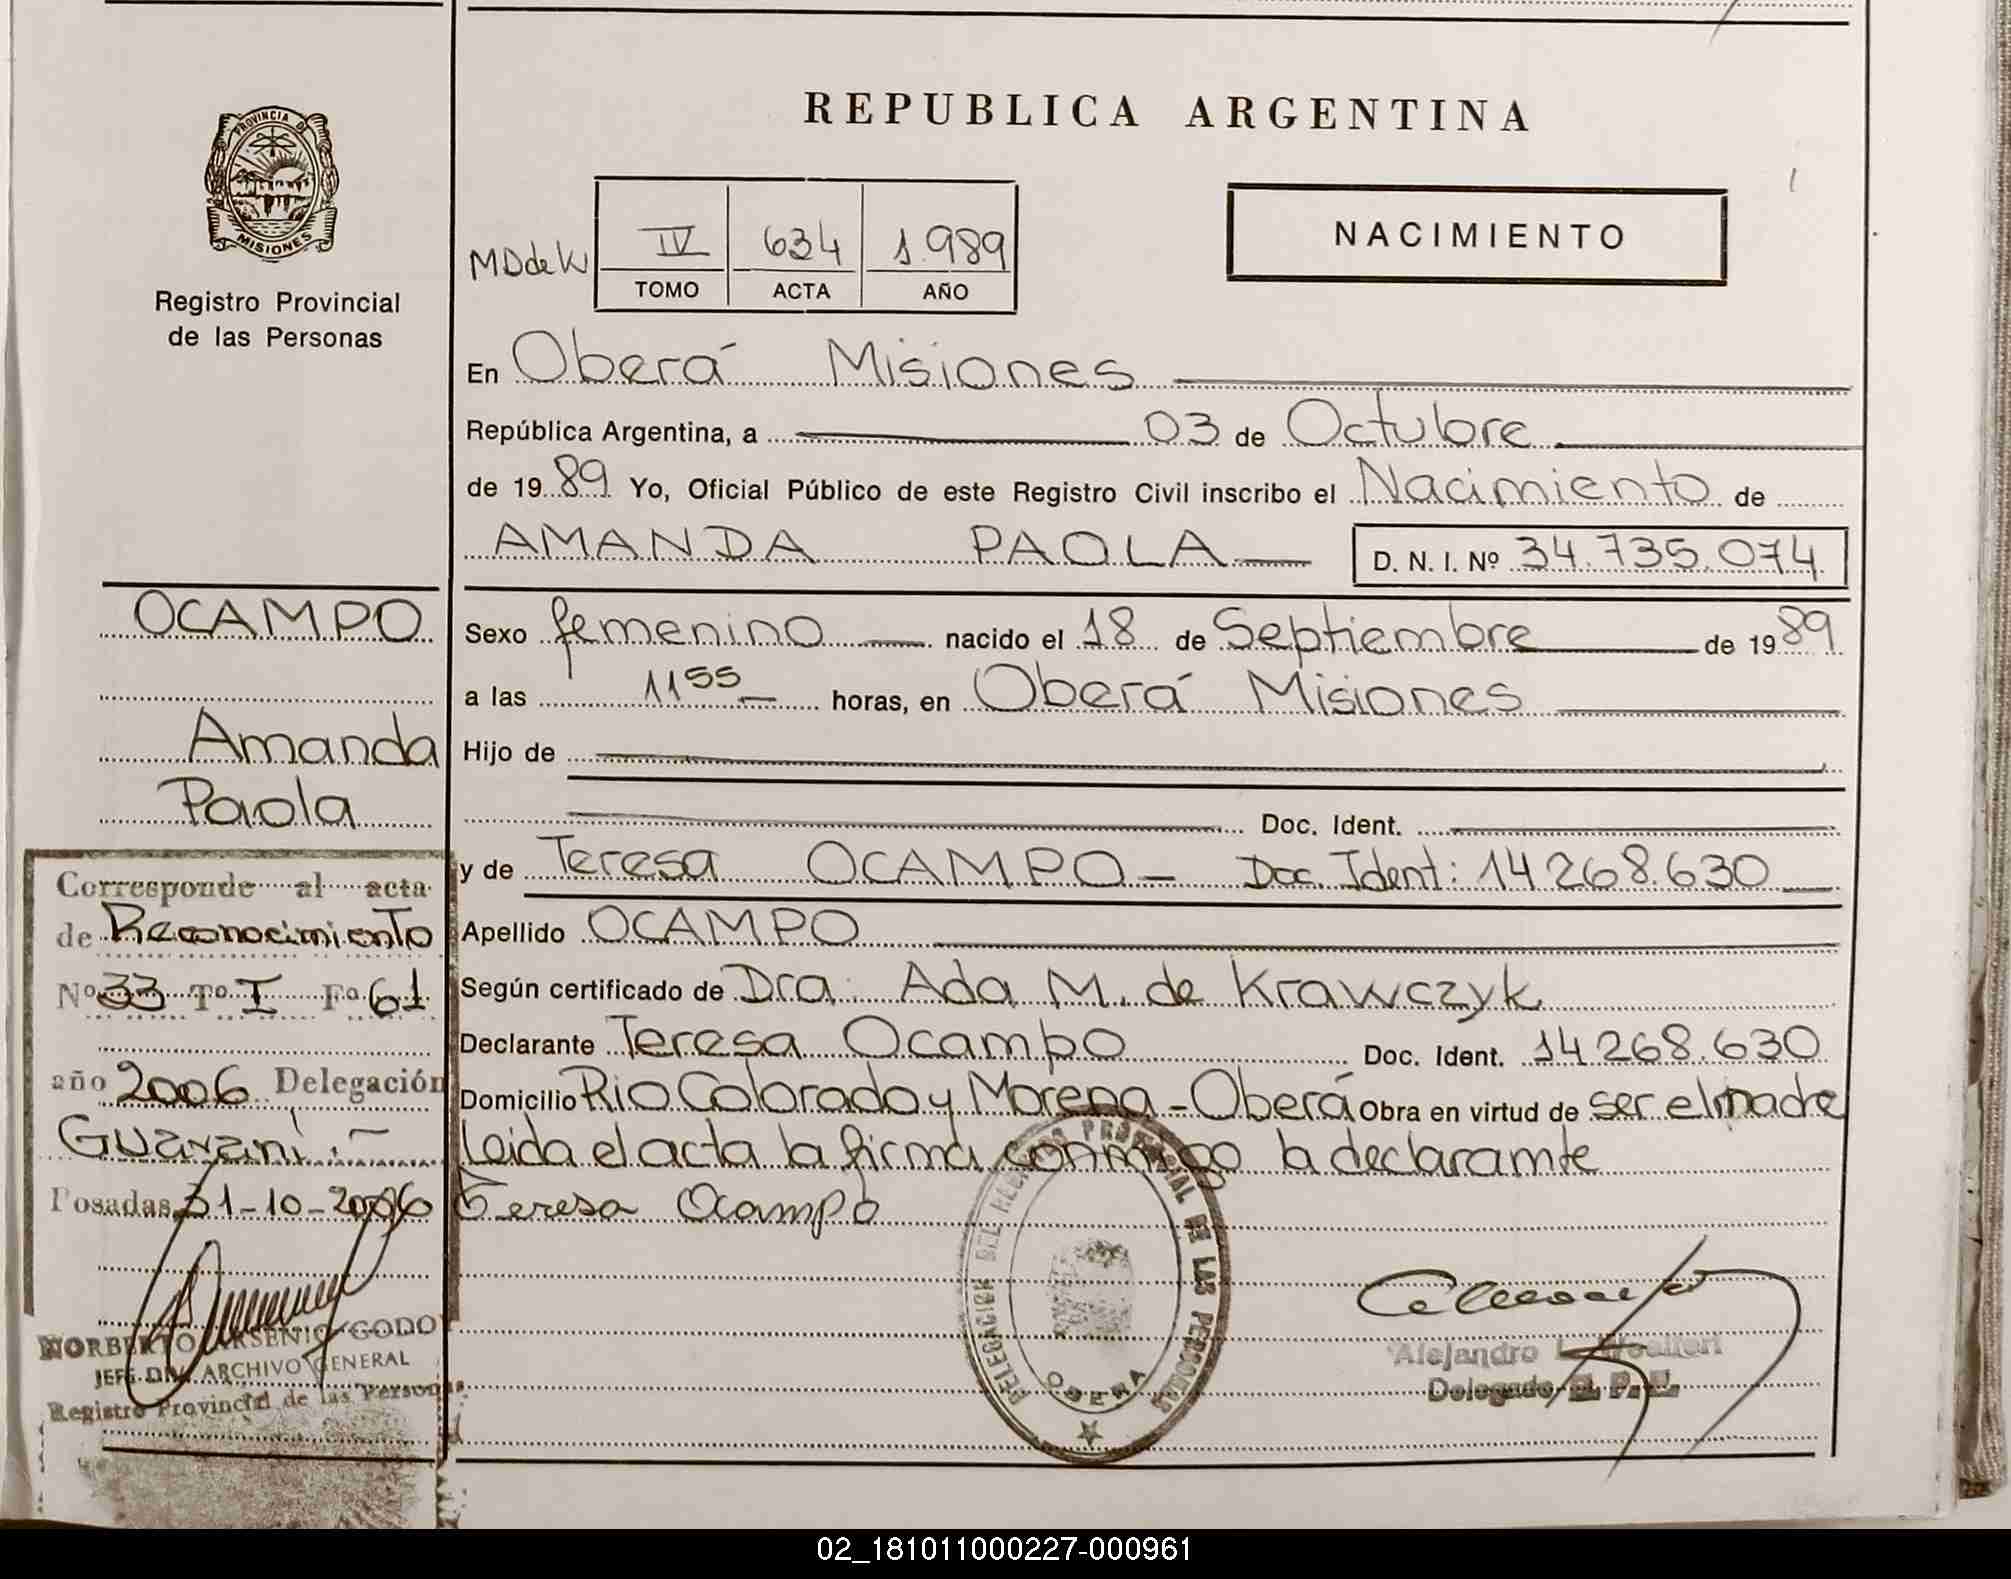 REPUBLICA ARGENTINA
PROVINCIA DE
MISIONES
Registro Provincial
de las Personas
NACIMIENTO
MDdeK
IV 634 1.989
TOMO ACTA AÑO
En Oberá Misiones
República Argentina, a 03 de Octubre
de 1989 Yo, Oficial Público de este Registro Civil inscribo el Nacimiento de
AMANDA PAOLA D. N. I. Nº 34.735.074
OCAMPO
Amanda
Paola
Sexo femenino nacido el 18 de Septiembre de 1989
a las 11 55 horas, en Oberá Misiones
Hijo de
Doc. Ident.
y de Teresa OCAMPO - Doc. Ident: 14268.630
Apellido OCAMPO
Según certificado de Dra. Ada M. de Krawczyk
Declarante Teresa Ocampo Doc. Ident. 14268.630
Domicilio Rio Colorado y Morena - Oberá Obra en virtud de ser el madre
Leida el acta la firma conmigo la declarante
Teresa Ocampo
Corresponde al acta
de Reconocimiento
Nº 33 Tº I Fº 61
año 2006 Delegación
Guaraní.-
Posadas, 31-10-2006
NORBERTO ARSENIO GODOY
JEFE DIV. ARCHIVO GENERAL
Registro Provincial de las Personas
DELEGACION DEL REGISTRO PROVINCIAL DE LAS PERSONAS
OBERA
Alejandro
Delegado R. P. P.
02_181011000227-000961